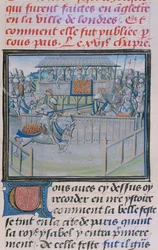 qui furent faites en agleter
en la ville de londres. Et
comment elle fut publiee p
tous pais. L. c. viij. chapi
Vous aues cy dessus oy
recorder en me ystoire
comment la belle feste
se tint en la cite de paris quant
la royne ysabel y entra p̄mere
ment de celle feste fut il grāt